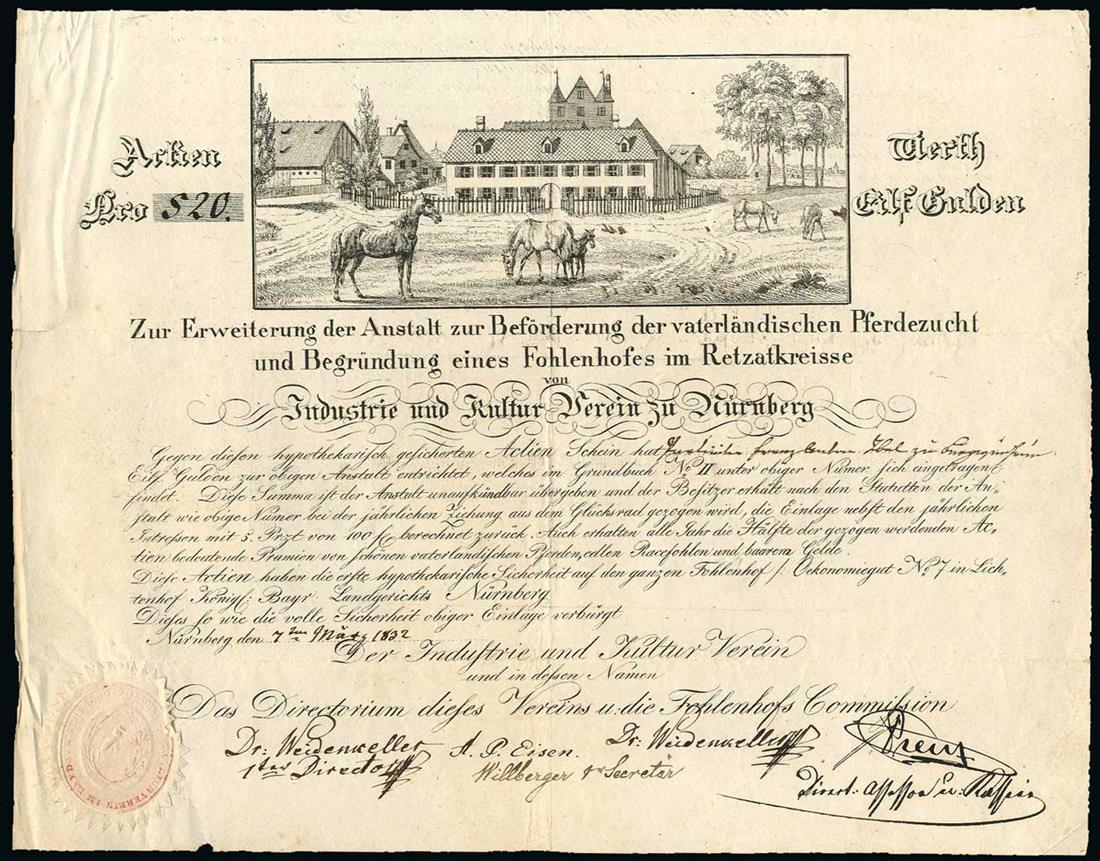 Actien
Nro 520.
Werth
Eilf Gulden
Zur Erweiterung der Anstalt zur Beförderung der vaterländischen Pferdezucht
und Begründung eines Fohlenhofes im Retzatkreisse
von
Industrie und Kultur Verein zu Nürnberg
Gegen diesen hypothekarisch gesicherten Actien Schein hat zu
Eilf Gulden zur obigen Anstalt entrichtet, welches im Grundbuch No. II unter obiger Numer sich eingetragen
findet. Diese Summa ist der Anstalt unaufkündbar übergeben und der Besitzer erhält nach den Statutten der An-
stalt wie obige Numer bei der jährlichen Ziehung aus dem Glücksrad gezogen wird, die Einlage nebst den jährlichen
Intressen mit 5. Przt von 100 f berechnet zurück. Auch erhalten alle Jahr die Hälfte der gezogen werdenden Ac-
tien bedeutende Pramien von schönen vaterländischen Pferden, edlen Racefohlen und baarem Gelde.
Diese Actien haben die erste hypothekarische Sicherheit auf den ganzen Fohlenhof /: Oekonomiegut No. 7 in Lich-
tenhof Königl: Bayr: Landgerichts Nürnberg
Dieses so wie die volle Sicherheit obiger Einlage verbürgt
Nürnberg den 7ten März 1832
Der Industrie und Kultur Verein
und in dessen Namen
Das Directorium dieses Vereins u: die Fohlenhofs Commission
Dr. Weidenkeller
1ster Director
A. P. Eisen.
Willberger Secretär
Dr. Weidenkeller
Direct: Assessor u: Kassier